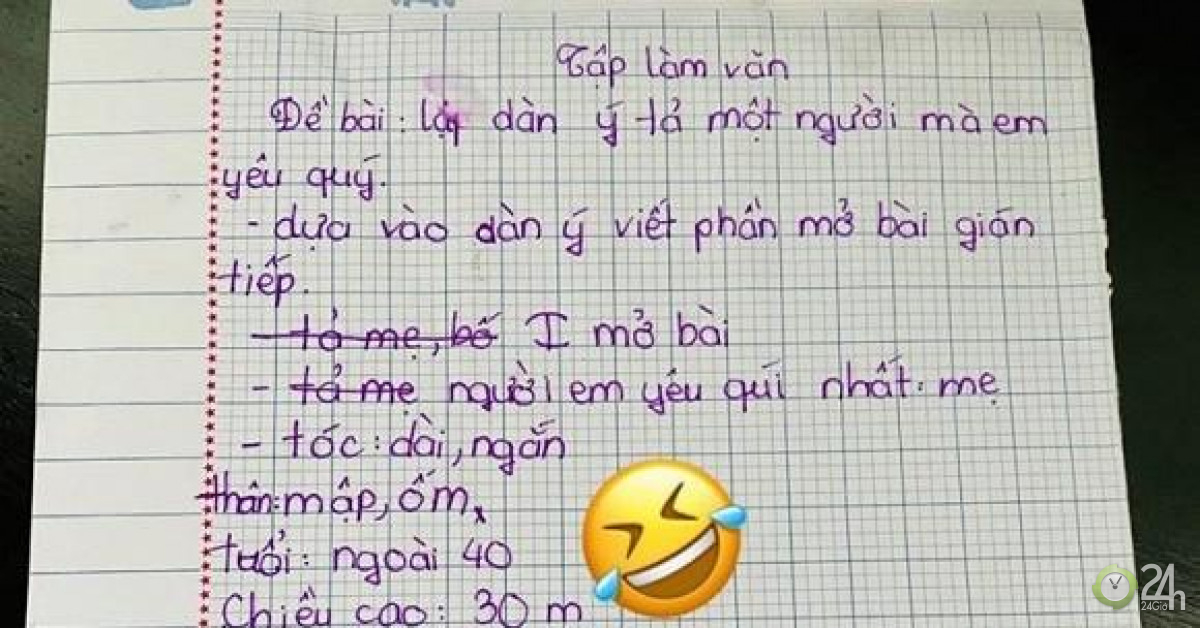 Tập làm văn
Đề bài: lập dàn ý tả một người mà em
yêu quý.
- dựa vào dàn ý viết phần mở bài gián
tiếp.
- tả mẹ, bố I mở bài
- tả mẹ người em yêu quí nhất: mẹ
- tóc: dài, ngắn
thân: mập, ốm,
tuổi: ngoài 40
Chiều cao: 30 m
24h
24Giờ